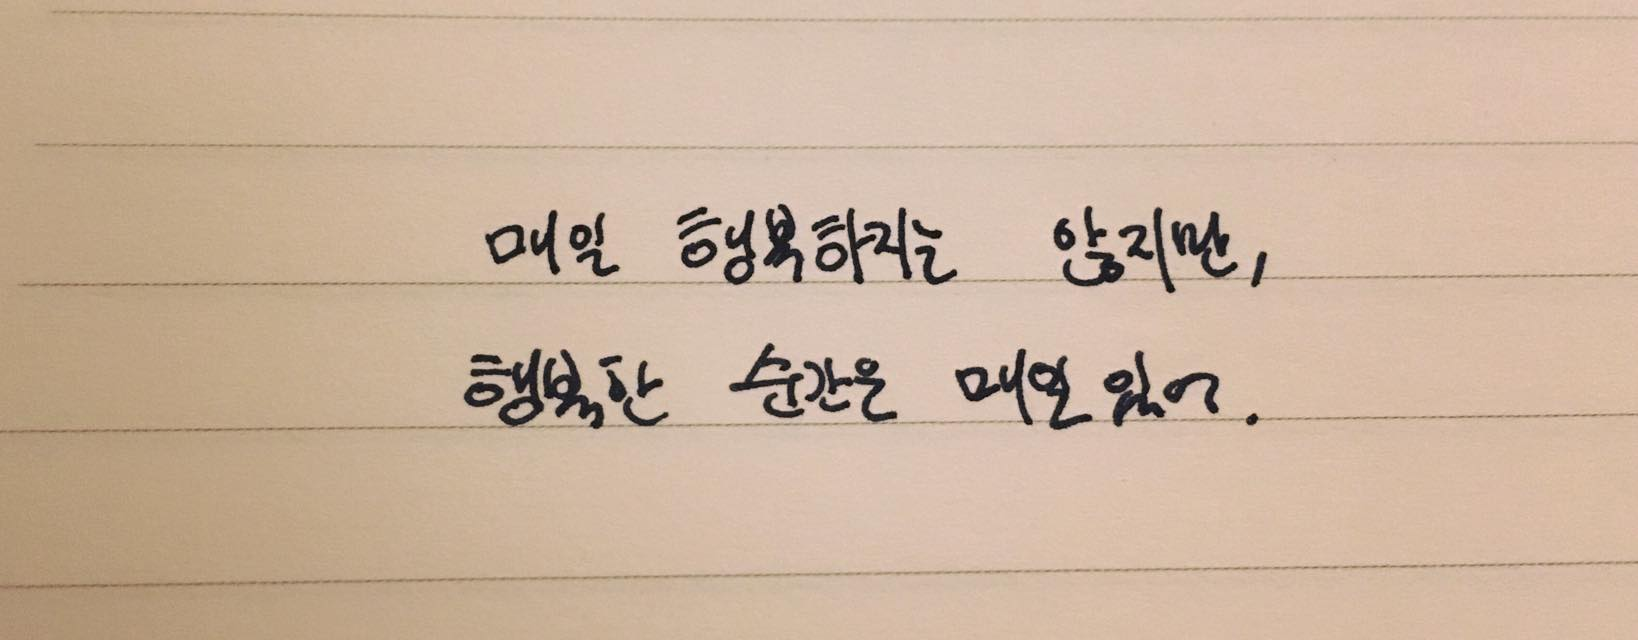 매일 행복하지는 않지만,
행복한 순간은 매일 있어.